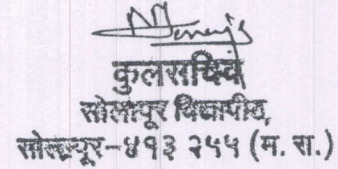 कुलसचिव
सोलापूर विद्यापीठ,
सोलापूर-४१३ २५५ (म. रा.)